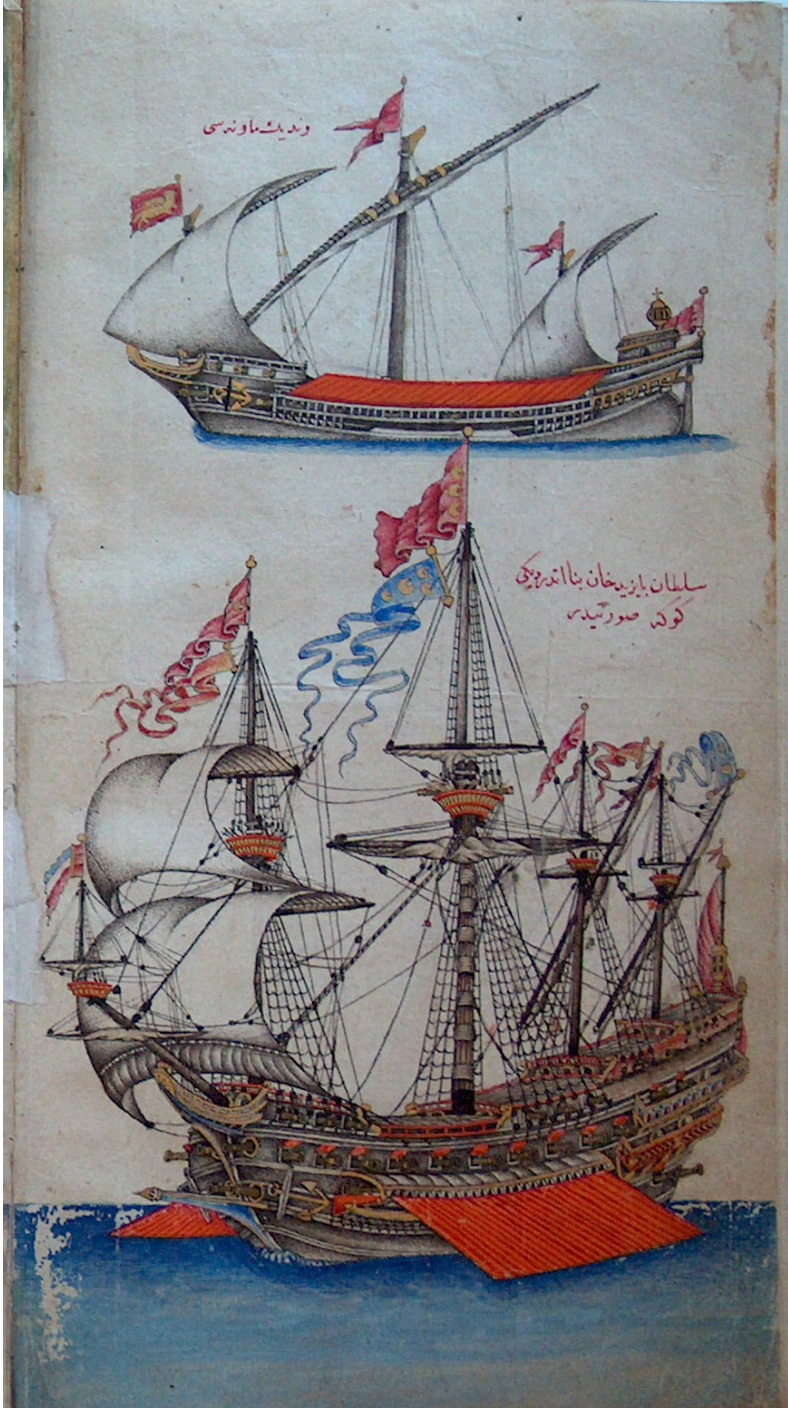 وندیك ماونه سی
سلطان بایزید خان بنا اتدردیكی
كوكه صورتیدر